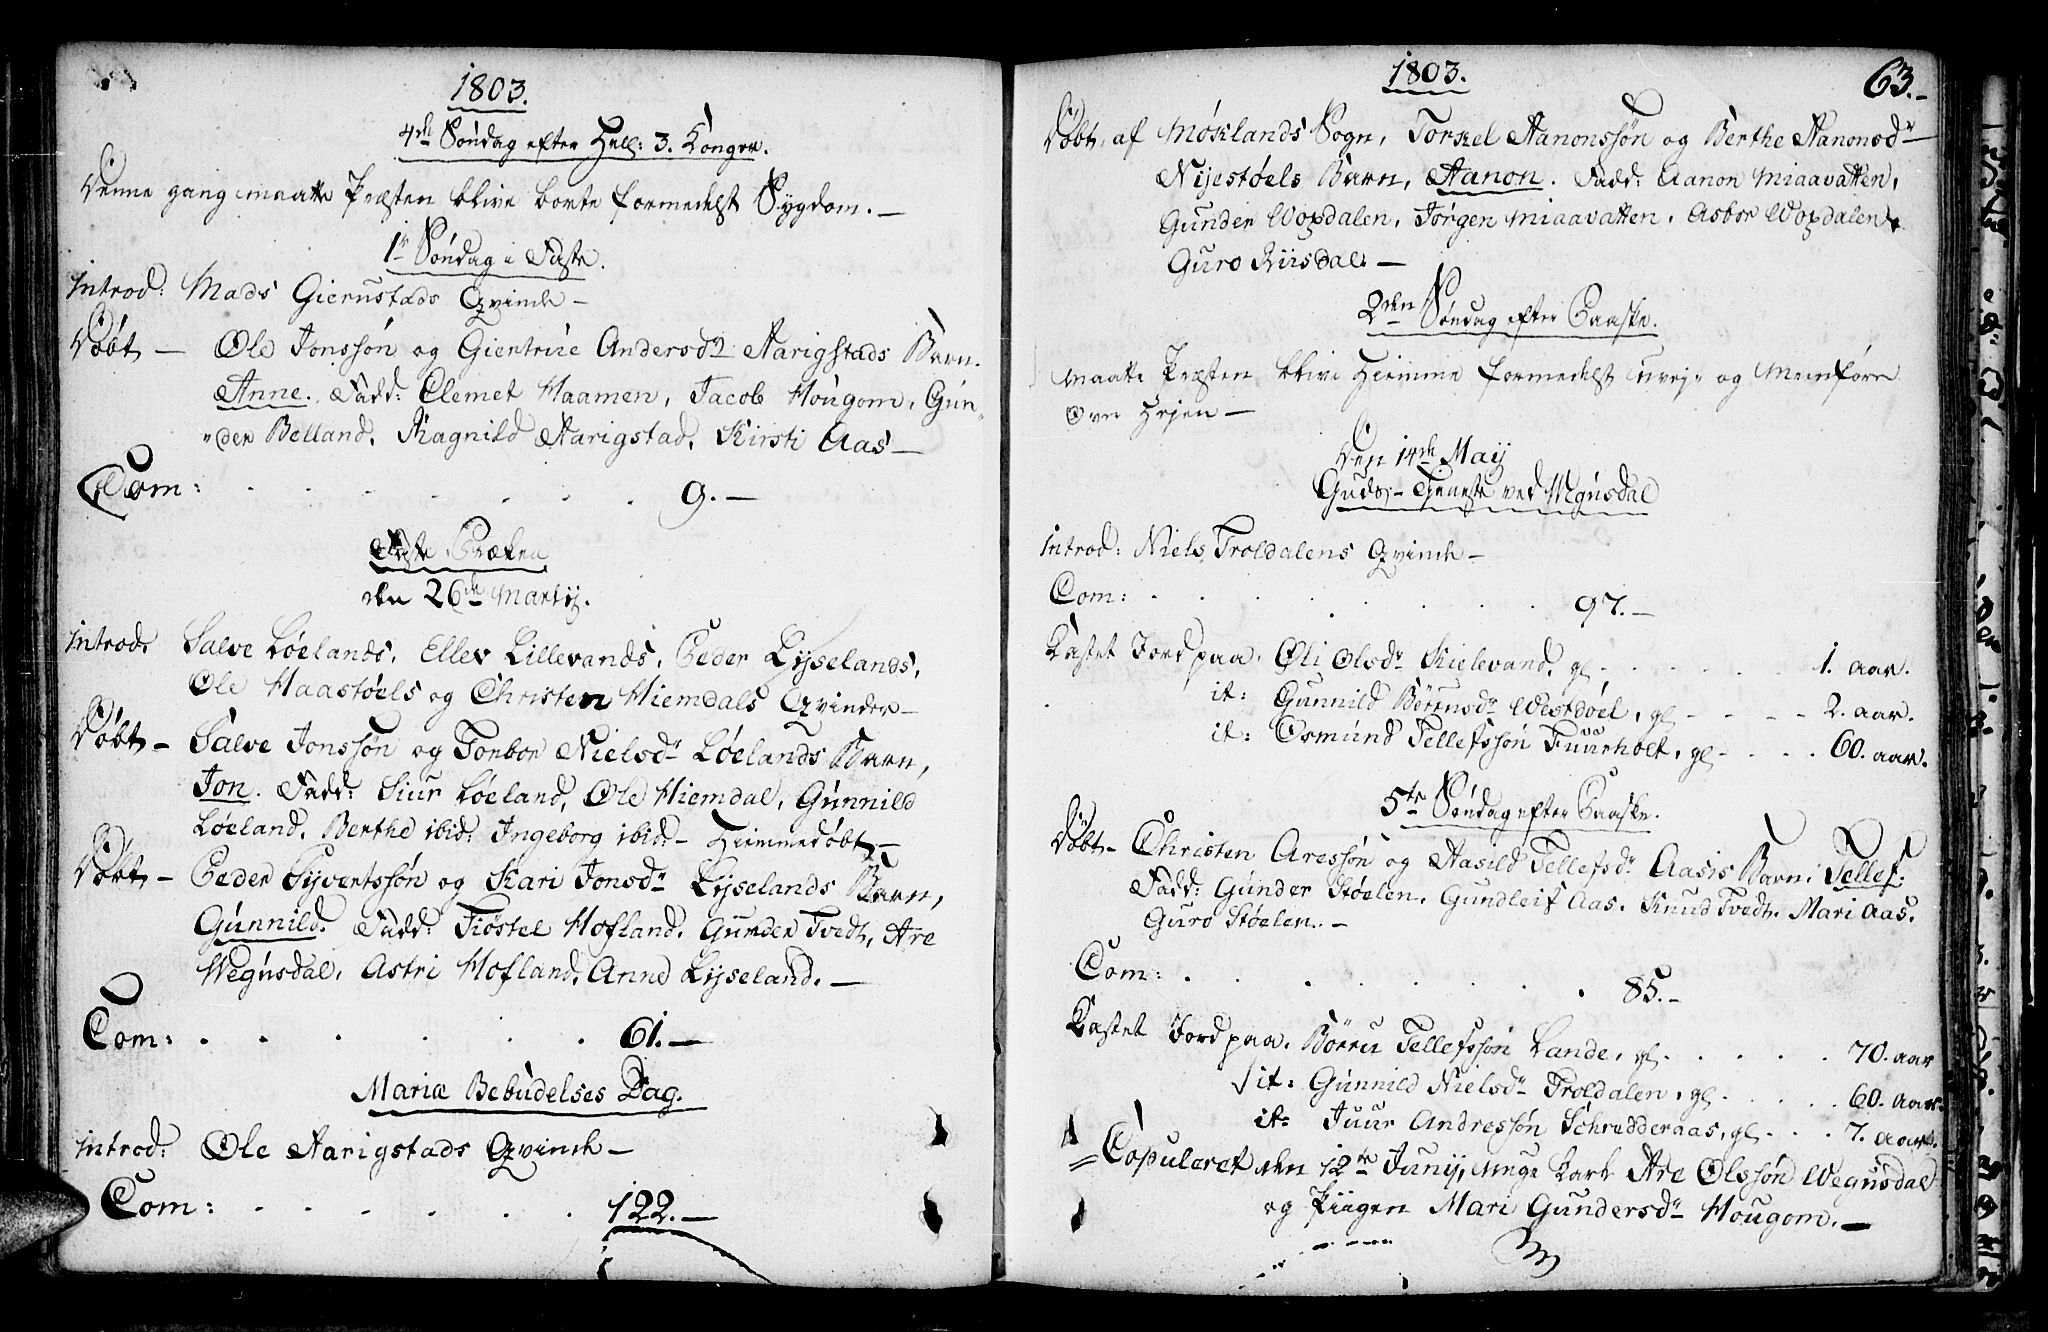 1803.
4de Søndag efter Hell: 3. Konger.
Denne gang maatte Præsten blive borte formedelst Sygdom. —
1r Søndag i Faste.
Introd: Mads Gierustads Qvinde —
Døbt — Ole Jonssøn og Giertrue Andersdr Aarigstads Barn.
Anne. Fadd: Clemet Haamen, Jacob Hougom, Gun-
der Belland, Ragnild Aarigstad, Kirsti Aas —
Com: . . . . . . . . 9. —
Faste Præken
den 26de Martij.
Introd. Salve Løelands, Ellev Lillevands, Peder Lyselands,
Ole Haastøels og Christen Hiemdals Qvinder —
Døbt — Salve Jonssøn og Tonbor Nielsdr Løelands Barn,
Jon. Fadd: Siur Løeland, Ole Hiemdal, Gunnild
Løeland, Berthe ibid: Ingeborg ibid: — Hiemmedøbt —
Døbt — Peder Syvertssøn og Kari Jonsdr Lyselands Barn,
Gunnild. Fadd: Tiøstel Hofland, Gunder Tvedt, Are
Wegusdal, Astri Hofland, Anne Lyseland. —
Com: . . . . . . 61. —
Mariæ Bebudelses Dag.
Introd: Ole Aarigstads Qvinde —
Com: . . . . . . 122. —
1803. 63. —
Døbt, af Møklands Sogn, Torkel Aanonssøn og Berthe Aanonsdr
Nijestøels Barn, Aanon. Fadd: Aanon Miaavatten,
Gunder Wopdalen, Jørgen Miaavatten, Asbor Wopdalen,
Guro Riisdal. —
2den Søndag efter Paaske.
Maatte Præsten blive Hiemme formedelst uveje og Meenføre
over Hejen —
Den 14de Maij
Guds-Tjeneste ved Wegusdal
Introd: Niels Troldalens Qvinde —
Com: . . . . . . . 97. —
Kastet Jord paa, Oli Olsdr Kielevand, gl. . . . . . 1. aar.
it: Gunnild Børrusdr Westdøel, gl. - - - - 2. aar.
it: Osmund Tellefssøn Fuurholt, gl. . . . 60. aar.
5te Søndag efter Paaske.
Døbt — Christen Aressøn og Aasild Tellefsdr Aasis Barn: Tellef:
Fadd: Gunder Støelen, Gundleif Aas, Knud Tvedt, Mari Aas,
Guro Støelen. —
Com: . . . . . . . 85. —
Kastet Jord paa, Børru Tellefssøn Lande, gl. . . . . 70. aar
it: Gunnild Nielsdr Troldalen, gl. . . . . 60. aar.
it: Juur Andressøn Schredderaas, gl. . . 7. aar.
Copuleret den 12te Junij, unge Karl Are Olssøn Wegusdal
og Piigen Mari Gundersdr Hougom. —